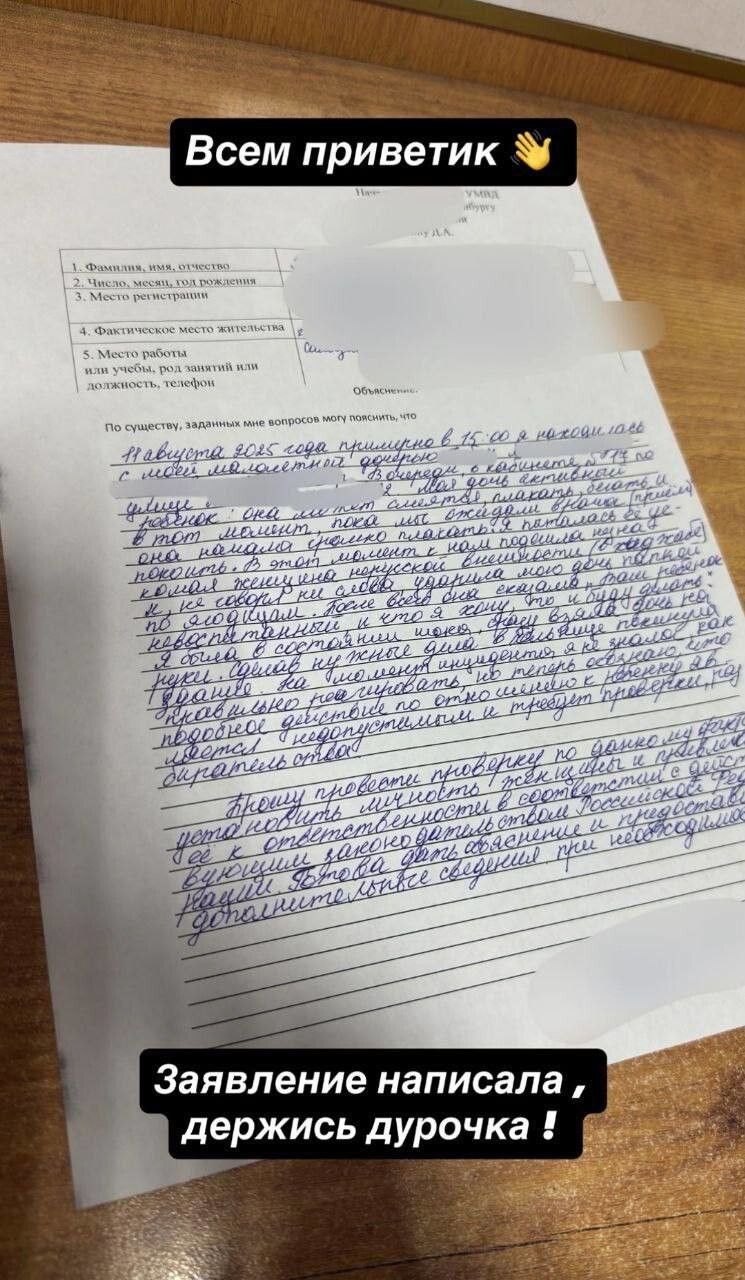 Всем приветик 👋
УМВД
Д.А.
1. Фамилия, имя, отчество
2. Число, месяц, год рождения
3. Место регистрации
4. Фактическое место жительства
5. Место работы
или учебы, род занятий или
должность, телефон
Объяснение.
По существу, заданных мне вопросов могу пояснить, что
11 августа 2025 года примерно в 15:00 я находилась
с моей малолетней дочерью
В очереди, в кабинете №17 по
улице Моя дочь активный
ребенок: она может смеяться, плакать, бегать и
в тот момент, пока мы ожидали врача (приём)
она начала громко плакать. Я пыталась её ус-
покоить. В этот момент к нам подошла незна-
комая женщина нерусской внешности (в хиджабе)
и, не говоря ни слова ударила мою дочь папкой
по ягодицам. После всего она сказала: Ваш ребенок
невоспитанный и что я хочу, то и буду делать.
Я была в состоянии шока, сразу взяла дочь на
руки. Сделав нужные дела в больнице покинула
здание. На момент инцидента я не знала, как
правильно реагировать, но теперь осознаю, что
подобное действие по отношению к ребенку яв-
ляется недопустимым и требует проверки, раз
бирательства.
Прошу провести проверку по данному факту
установить личность женщины и привлечь
её к ответственности в соответствии с дейст
вующим законодательством Российской Фед
рации. Готова дать объяснение и предостави
дополнительные сведения при необходимос
Заявление написала ,
держись дурочка !